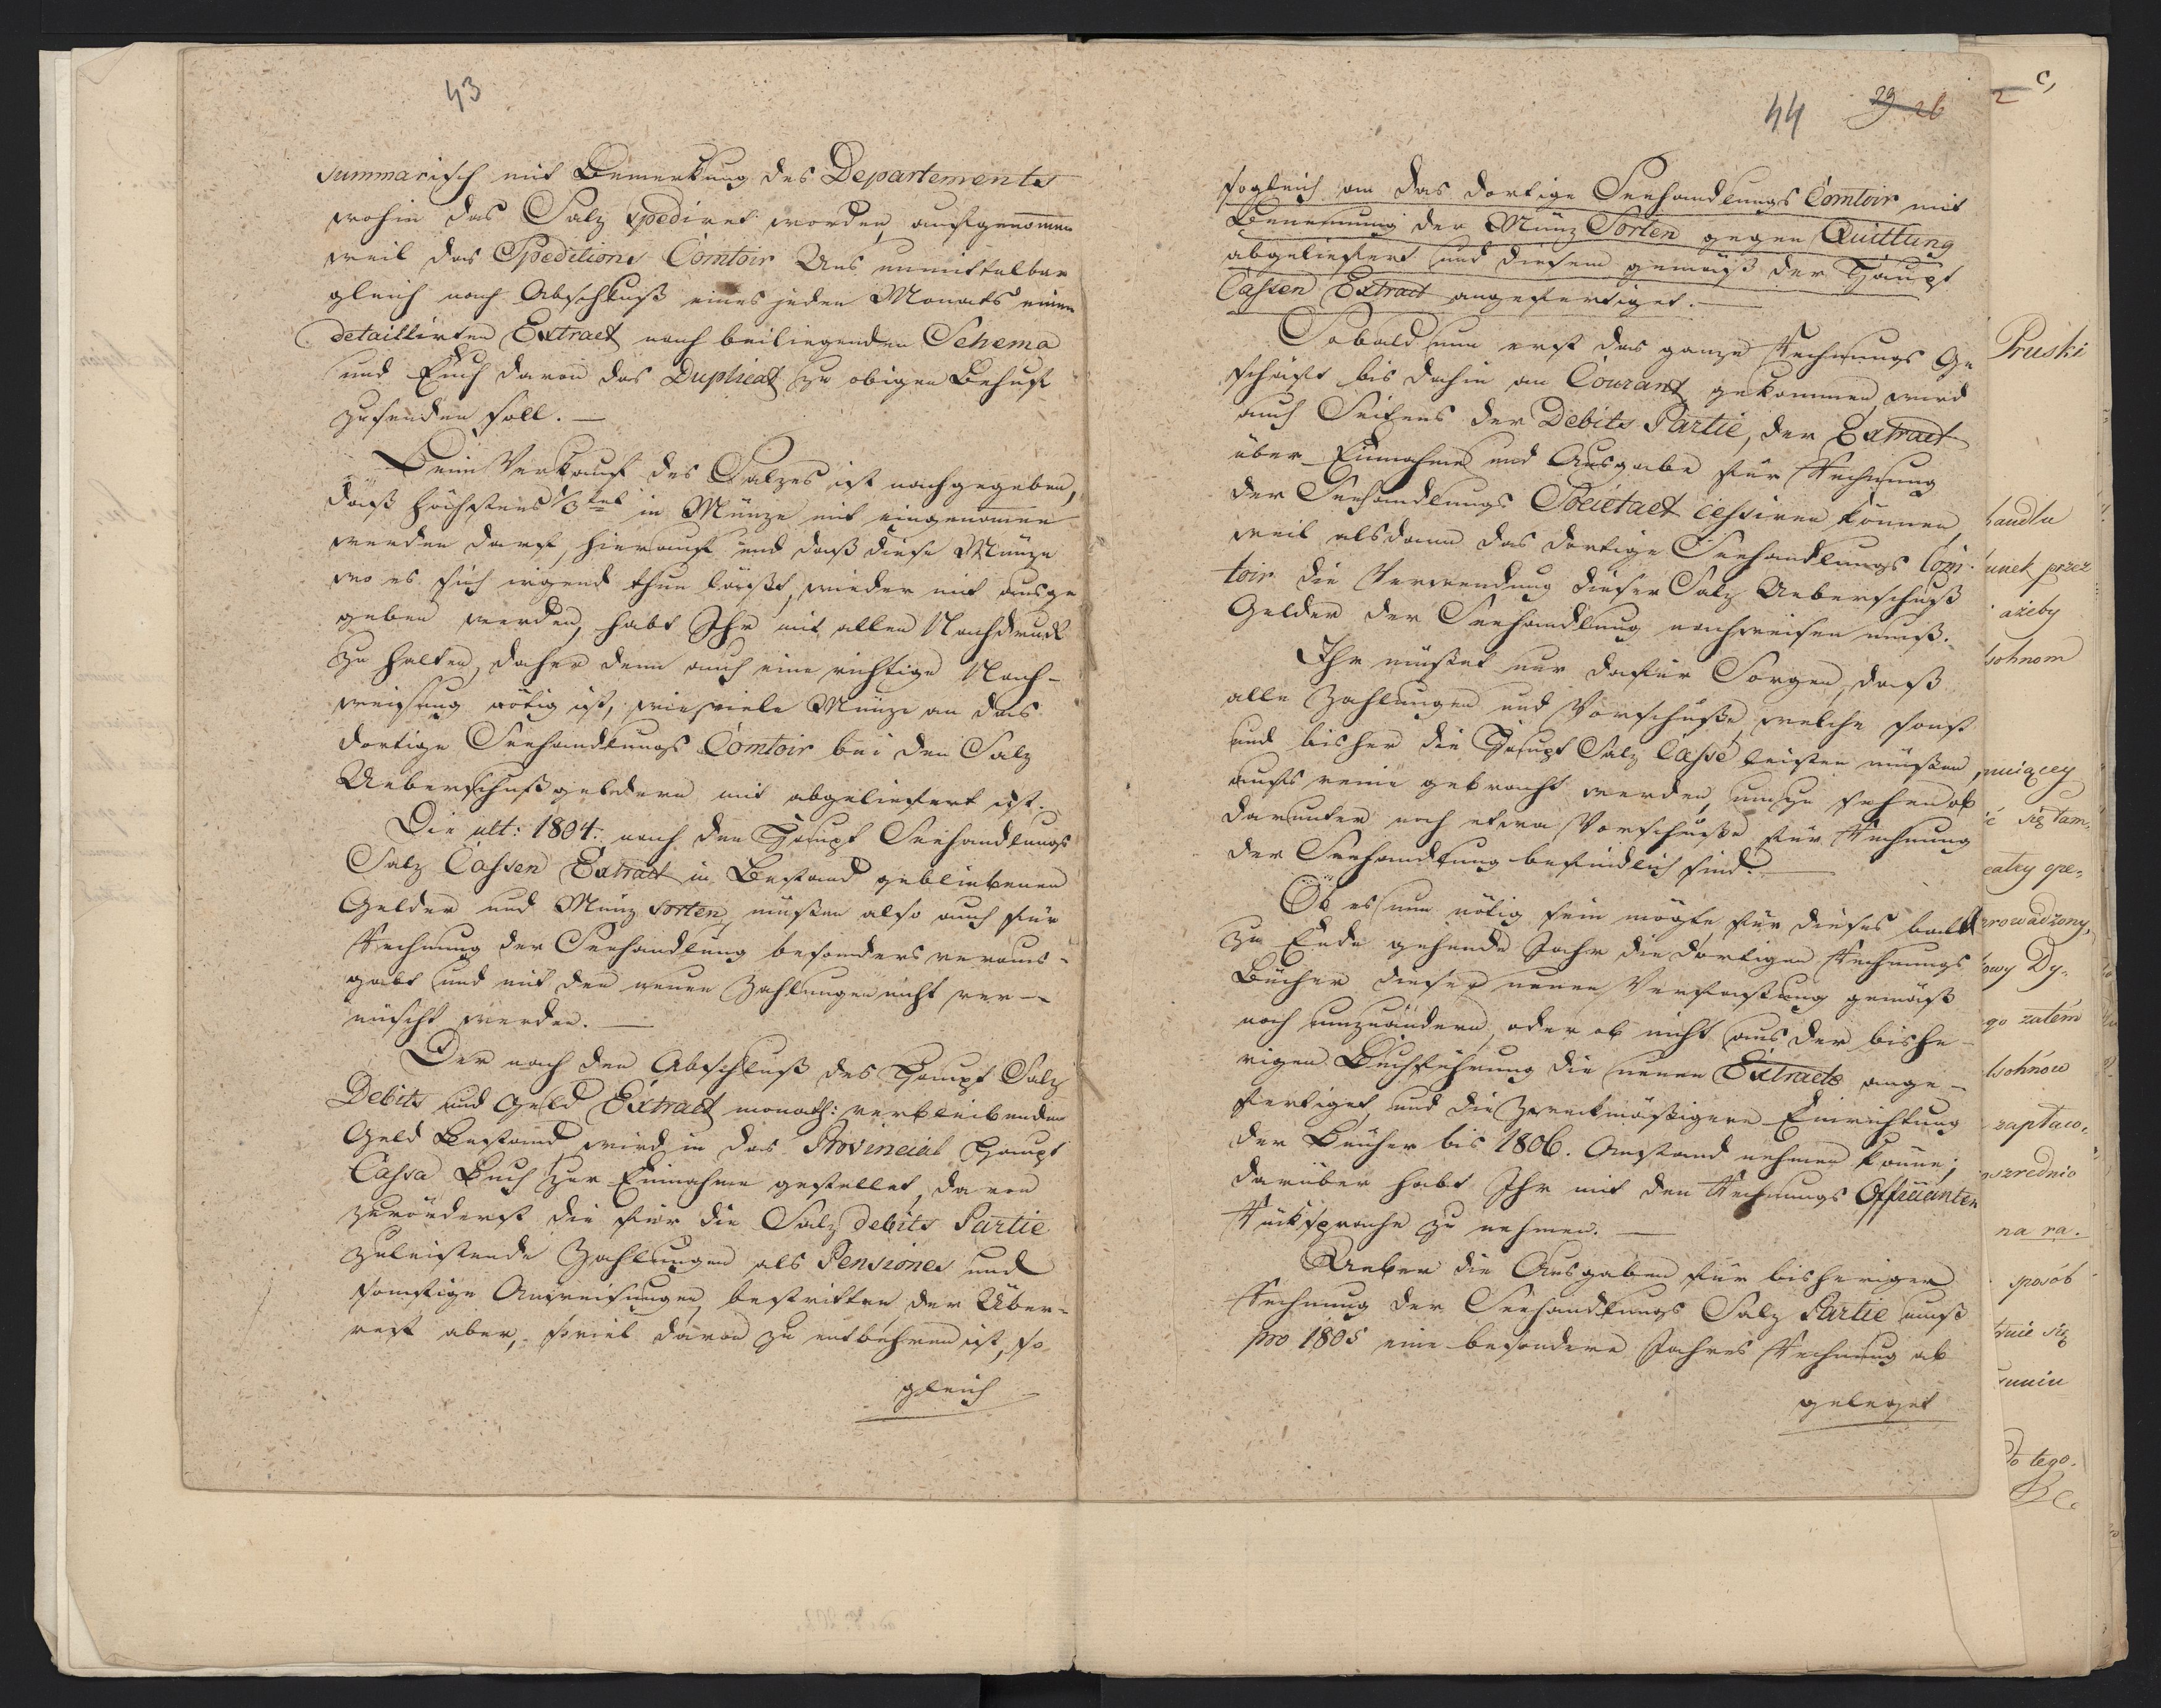 43
summarisch mit Bemerkung des Departements
wohin das Salz spediret worden, aufgenommen
weil das Speditions Comtoir Uns unmittelbar
gleich nach Abschluß eines jeden Monats einen
detaillirten Extract nach beiliegenden Schema
und Euch davon das Duplicat zu obigen Behuf
zusenden soll. —
Beim Verkauf des Salzes ist nachgegeben,
daß höchstens 1/3tel in Münze mit eingenommen
werden darf, hierauf und daß diese Münze
wo es sich irgend thun läßt, wieder mit ausge
geben werden, habt Ihr mit allen Nachdruck
zu halten, daher denn auch eine richtige Nach-
weisung nötig ist, wie viele Münze an das
dortige Seehandlungs Comtoir bei den Salz
Ueberschußgeldern mit abgeliefert ist.
Die ult: 1804. nach den Haupt Seehandlungs
Salz Cassen Extract in Bestand gebliebenen
Gelder und Münz Sorten, müßen also auch für
Rechnung der Seehandlung besonders veraus-
gabt und mit den neuen Zahlungen nicht ver-
mischt werden. —
Der nach den Abschluß des Haupt Salz
Debits und Geld Extract monath: verbleibenden
Geld Bestand wird in das Provincial Haupt
Cassa Buch zur Einnahme gestellet, davon
zuvörderst die für die Salz debits Partie
zuleistende Zahlungen als Pensiones und
sonstige Anweisungen, bestritten der Über-
rest aber, soviel davon zu entbehren ist, so
gleich
44 29 26
sogleich an das dortige Seehandlungs Comtoir mit
Benennung der Münz Sorten gegen Quittung
abgeliefert und diesem gemäß der Haupt
Cassen Extract angefertiget. —
Sobald nun erst das ganze Rechnungs Ge
schäft bis dahin an Courant gekommen, wird
auch Seitens der Debits Partie, der Extract
über Einnahme und Ausgabe für Rechnung
der Seehandlungs Societaet cessiren können,
weil alsdann das dortige Seehandlungs Com-
toir die Verwendung dieser Salz Ueberschuß
Gelder der Seehandlung nachweisen muß.
Ihr müßet nur dafür Sorgen, daß
alle Zahlungen und Vorschüße, welche sonst
und bisher die Haupt Salz Casse leisten müßen,
aufs reine gebracht werden, um zu sehen ob
darunter noch etwa Vorschüße für Rechnung
der Seehandlung befindlich sind. —
Ob es nun nötig sein mögte für dieses bald
zu Ende gehende Jahr die dortigen Rechnungs
Bücher dieser neuen Verfaßung gemäß
noch umzuändern, oder ob nicht aus der bishe-
rigen Buchführung die neuen Extracte ange-
fertiget, und die zweckmäßigere Einrichtung
der Bücher bis 1806. Anstand nehmen könne;
darüber habt Ihr mit den Rechnungs Officianten
Rüksprache zu nehmen. —
Ueber die Ausgaben für bisheriger
Rechnung der Seehandlungs Salz Partie muß
pro 1805 eine besondere Jahres Rechnung ab
geleget
2 c,
Pruski
handlu
unek przez
ażeby
lsohnom
się tam-
rowadzony,
owy Dy-
go zatém
lsohnów
zaptaco-
oszrednio
na ra-
sposób
się
do tego.